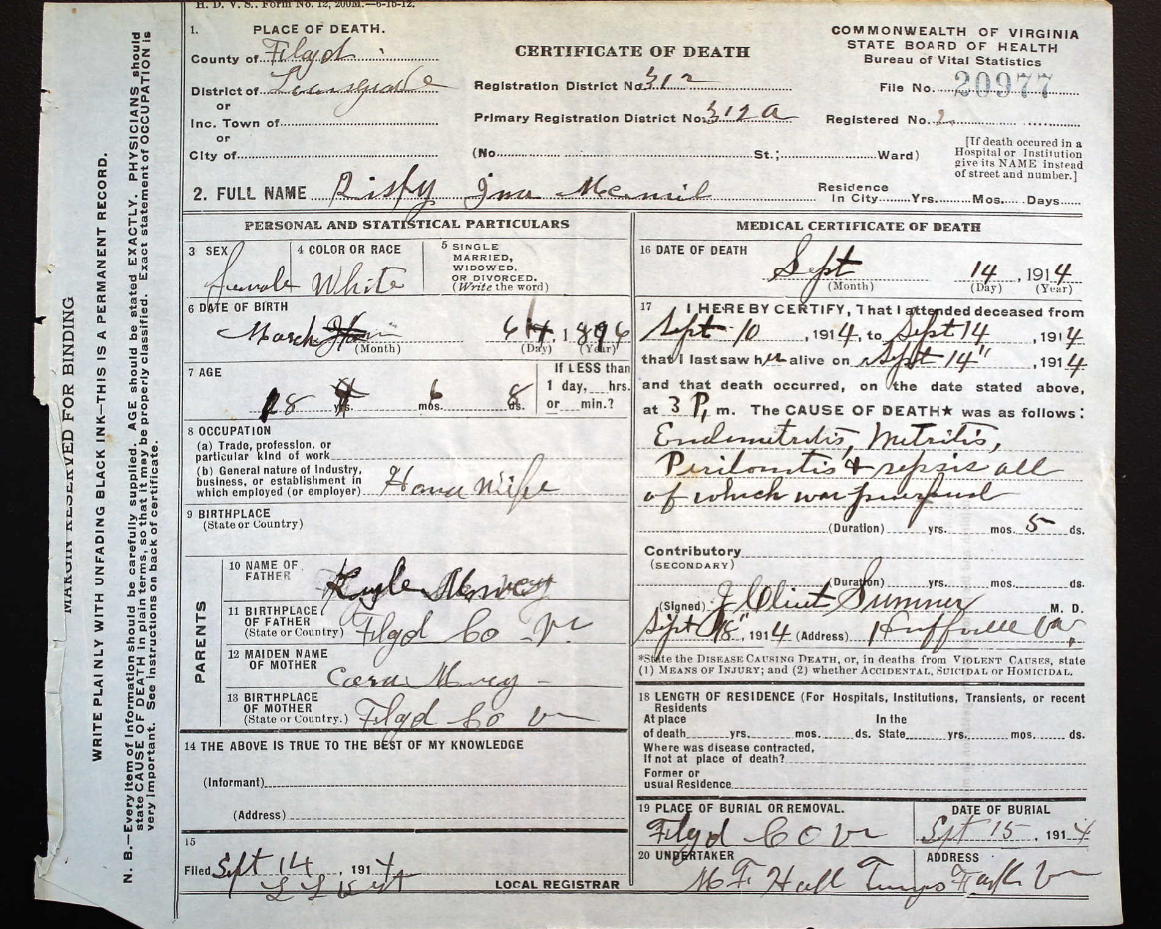 H. D. V. S. Form No. 12, 200M.—6-15-12.
1. PLACE OF DEATH.
County of Floyd
District of
or
Inc. Town of
or
City of
CERTIFICATE OF DEATH
Registration District No. 312
Primary Registration District No. 312 a
(No. St.; Ward)
COMMONWEALTH OF VIRGINIA
STATE BOARD OF HEALTH
Bureau of Vital Statistics
File No. 20977
Registered No.
[If death occured in a
Hospital or Institution
give its NAME instead
of street and number.]
2. FULL NAME
Residence
In City Yrs. Mos. Days
PERSONAL AND STATISTICAL PARTICULARS
3 SEX female
4 COLOR OR RACE White
5 SINGLE
MARRIED,
WIDOWED.
OR DIVORCED.
(Write the word)
6 DATE OF BIRTH
March 6 1896
(Month) (Day) (Year)
7 AGE
18 yrs. 6 mos. 8 ds.
If LESS than
1 day, hrs.
or min.?
8 OCCUPATION
(a) Trade, profession, or
particular kind of work
(b) General nature of Industry,
business, or establishment in
which employed (or employer) House wife
9 BIRTHPLACE
(State or Country)
PARENTS
10 NAME OF
FATHER
11 BIRTHPLACE
OF FATHER
(State or Country) Floyd Co Va
12 MAIDEN NAME
OF MOTHER
13 BIRTHPLACE
OF MOTHER
(State or Country.) Floyd Co Va
14 THE ABOVE IS TRUE TO THE BEST OF MY KNOWLEDGE
(Informant)
(Address)
15
Filed Sept 14, 1914
LOCAL REGISTRAR
MEDICAL CERTIFICATE OF DEATH
16 DATE OF DEATH
Sept 14, 1914
(Month) (Day) (Year)
17 I HEREBY CERTIFY, That I attended deceased from
Sept 10, 1914, to Sept 14, 1914
that I last saw her alive on Sept 14", 1914
and that death occurred, on the date stated above,
at 3 P, m. The CAUSE OF DEATH★ was as follows:
Endometritis, Metritis,
Peritonitis & sepsis all
of which was puerperal
(Duration) yrs. mos. 5 ds.
Contributory
(SECONDARY)
(Duration) yrs. mos. ds.
(Signed) J Clint Sumner M. D.
Sept 1914 (Address) Huffville Va.
*State the DISEASE CAUSING DEATH, or, in deaths from VIOLENT CAUSES, state
(1) MEANS OF INJURY; and (2) whether ACCIDENTAL, SUICIDAL or HOMICIDAL.
18 LENGTH OF RESIDENCE (For Hospitals, Institutions, Transients, or recent
Residents
At place
of death yrs. mos. ds.
In the
State yrs. mos. ds.
Where was disease contracted,
If not at place of death?
Former or
usual Residence
19 PLACE OF BURIAL OR REMOVAL.
Floyd Co Va
DATE OF BURIAL
Sept 15, 1914
20 UNDERTAKER
M. F. Hall
ADDRESS
MARGIN RESERVED FOR BINDING
WRITE PLAINLY WITH UNFADING BLACK INK—THIS IS A PERMANENT RECORD.
N. B.—Every item of information should be carefully supplied. AGE should be stated EXACTLY. PHYSICIANS should
state CAUSE OF DEATH in plain terms, so that it may be properly classified. Exact statement of OCCUPATION is
very important. See instructions on back of certificate.